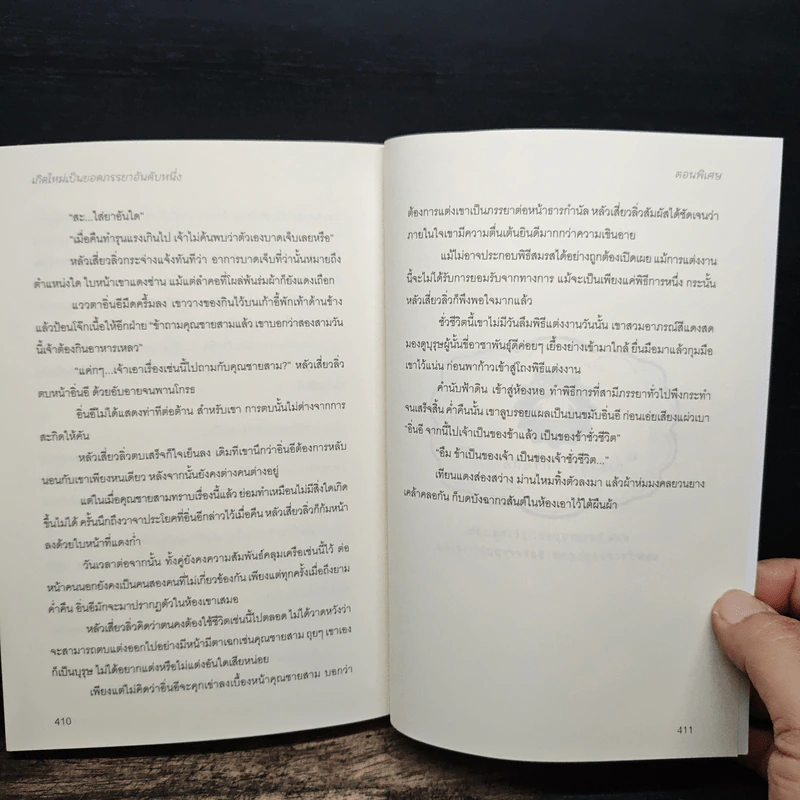 เกิดใหม่เป็นยอดภรรยาอันดับหนึ่ง
“สะ...ใส่ยาอันใด”
“เมื่อคืนทำรุนแรงเกินไป เจ้าไม่ค้นพบว่าตัวเองบาดเจ็บเลยหรือ”
หลัวเสี่ยวลิ่วกระจ่างแจ้งทันทีว่า อาการบาดเจ็บที่ว่านั้นหมายถึง
ตำแหน่งใด ใบหน้าเขาแดงซ่าน แม้แต่ลำคอที่โผล่พ้นร่มผ้าก็ยังแดงเถือก
แววตาอิ่นอีมืดครึ้มลง เขาวางของกินไว้บนเก้าอี้พักเท้าด้านข้าง
แล้วป้อนโจ๊กเนื้อให้อีกฝ่าย “ข้าถามคุณชายสามแล้ว เขาบอกว่าสองสามวัน
นี้เจ้าต้องกินอาหารเหลว”
“แค่กๆ...เจ้าเอาเรื่องเช่นนี้ไปถามกับคุณชายสาม?” หลัวเสี่ยวลิ่ว
ตบหน้าอิ่นอี ด้วยอับอายจนพานโกรธ
อิ่นอีไม่ได้แสดงท่าทีต่อต้าน สำหรับเขา การตบนั้นไม่ต่างจากการ
สะกิดให้คัน
หลัวเสี่ยวลิ่วตบเสร็จก็ใจเย็นลง เดิมทีเขานึกว่าอิ่นอีต้องการหลับ
นอนกับเขาเพียงหนเดียว หลังจากนั้นยังคงต่างคนต่างอยู่
แต่ในเมื่อคุณชายสามทราบเรื่องนี้แล้ว ย่อมทำเหมือนไม่มีสิ่งใดเกิด
ขึ้นไม่ได้ ครั้นนึกถึงวาจาประโยคที่อิ่นอีกล่าวไว้เมื่อคืน หลัวเสี่ยวลิ่วก็ก้มหน้า
ลงด้วยใบหน้าที่แดงก่ำ
วันเวลาต่อจากนั้น ทั้งคู่ยังคงความสัมพันธ์คลุมเครือเช่นนี้ไว้ ต่อ
หน้าคนนอกยังคงเป็นคนสองคนที่ไม่เกี่ยวข้องกัน เพียงแต่ทุกครั้งเมื่อถึงยาม
ค่ำคืน อิ่นอีมักจะมาปรากฏตัวในห้องเขาเสมอ
หลัวเสี่ยวลิ่วคิดว่าตนคงต้องใช้ชีวิตเช่นนี้ไปตลอด ไม่ได้วาดหวังว่า
จะสามารถตบแต่งออกไปอย่างมีหน้ามีตาเฉกเช่นคุณชายสาม ถุยๆ เขาเอง
ก็เป็นบุรุษ ไม่ได้อยากแต่งหรือไม่แต่งอันใดเสียหน่อย
เพียงแต่ไม่คิดว่าอิ่นอีจะคุกเข่าลงเบื้องหน้าคุณชายสาม บอกว่า
410
ตอนพิเศษ
ต้องการแต่งเขาเป็นภรรยาต่อหน้าธารกำนัล หลัวเสี่ยวลิ่วสัมผัสได้ชัดเจนว่า
ภายในใจเขามีความตื่นเต้นยินดีมากกว่าความเขินอาย
แม้ไม่อาจประกอบพิธีสมรสได้อย่างถูกต้องเปิดเผย แม้การแต่งงาน
นี้จะไม่ได้รับการยอมรับจากทางการ แม้จะเป็นเพียงแค่พิธีการหนึ่ง กระนั้น
หลัวเสี่ยวลิ่วก็พึงพอใจมากแล้ว
ชั่วชีวิตนี้เขาไม่มีวันลืมพิธีแต่งงานวันนั้น เขาสวมอาภรณ์สีแดงสด
มองดูบุรุษผู้นั้นขี่อาชาพันธุ์ดีค่อยๆ เยื้องย่างเข้ามาใกล้ ยื่นมือมาแล้วกุมมือ
เขาไว้แน่น ก่อนพาก้าวเข้าสู่โถงพิธีแต่งงาน
คำนับฟ้าดิน เข้าสู่ห้องหอ ทำพิธีการที่สามีภรรยาทั่วไปพึงกระทำ
จนเสร็จสิ้น ค่ำคืนนั้น เขาลูบรอยแผลเป็นบนขมับอิ่นอี ก่อนเอ่ยเสียงแผ่วเบา
“อิ่นอี จากนี้ไปเจ้าเป็นของข้าแล้ว เป็นของข้าชั่วชีวิต”
“อืม ข้าเป็นของเจ้า เป็นของเจ้าชั่วชีวิต...”
เทียนแดงส่องสว่าง ม่านโหมทิ้งตัวลงมา แล้วผ้าห่มมงคลยวนยาง
เคล้าคลอกัน ก็บดบังฉากวสันต์ในห้องเอาไว้ใต้ผืนผ้า
411